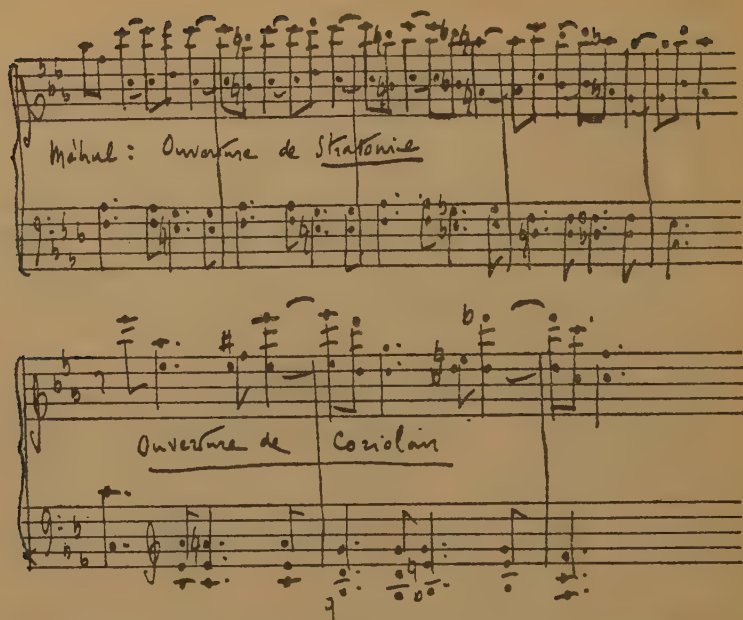 Méhul: Ouverture de Stratonice
Ouverture de Coriolan